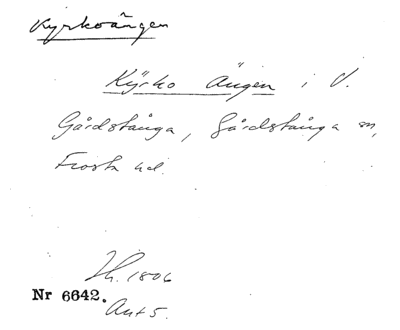 Kyrkoängen
Kyrko Ängen i V.
Gårdstånga, Gårdstånga sn,
Frosta hd.
Lh. 1806
Nr 6642.
Akt 5.